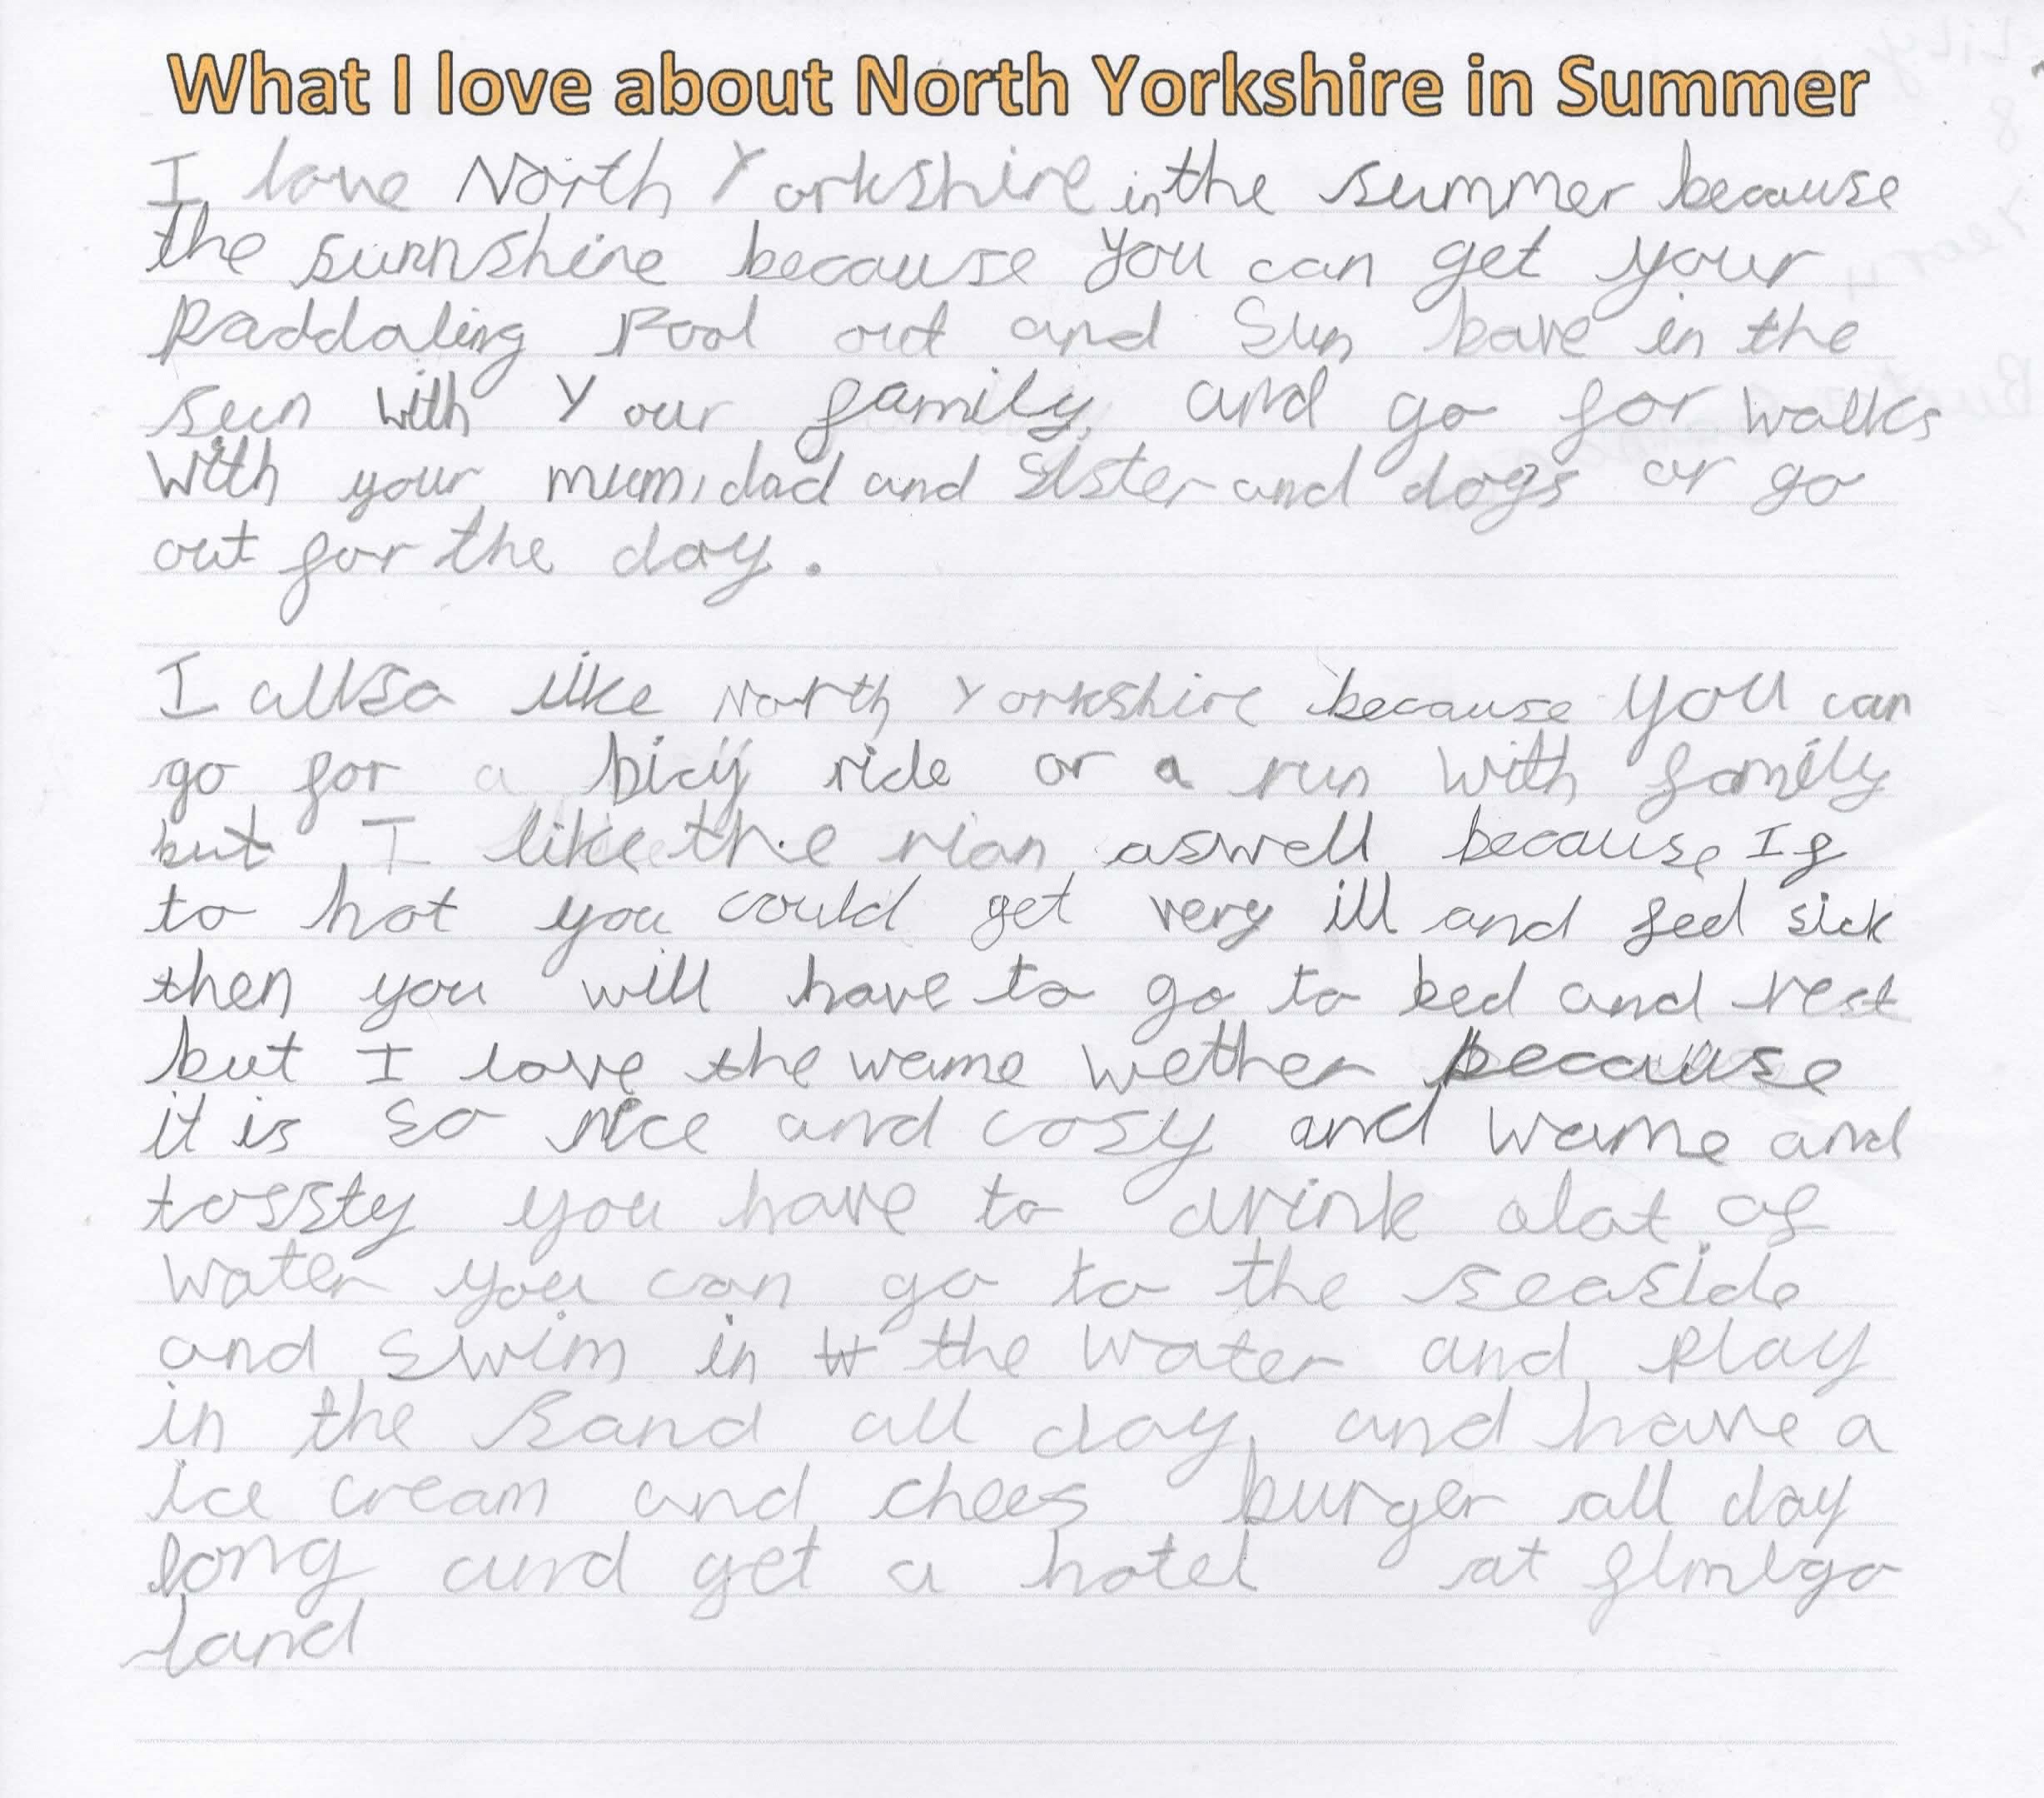 What I love about North Yorkshire in Summer
I love North Yorkshire in the summer because
the sunnshine because you can get your
Paddaling Pool out and Sun bave in the
sun with Your family, and go for walks
with your mum, dad and Sister and dogs or go
out for the day.
I allso like North Yorkshire because you can
go for a ride or a run with family
but I like the rian aswell because If
to hot you could get very ill and feel sick
then you will have to go to bed and rest
but I love the warme wether because
it is so nice and cosy and warme and
tossty you have to drink alot of
water you can go to the seaside
and swim in the water and play
in the sand all day, and have a
ice cream and chees burger all day
long and get a hotel at flmigo
land
Lily
8
Year 4